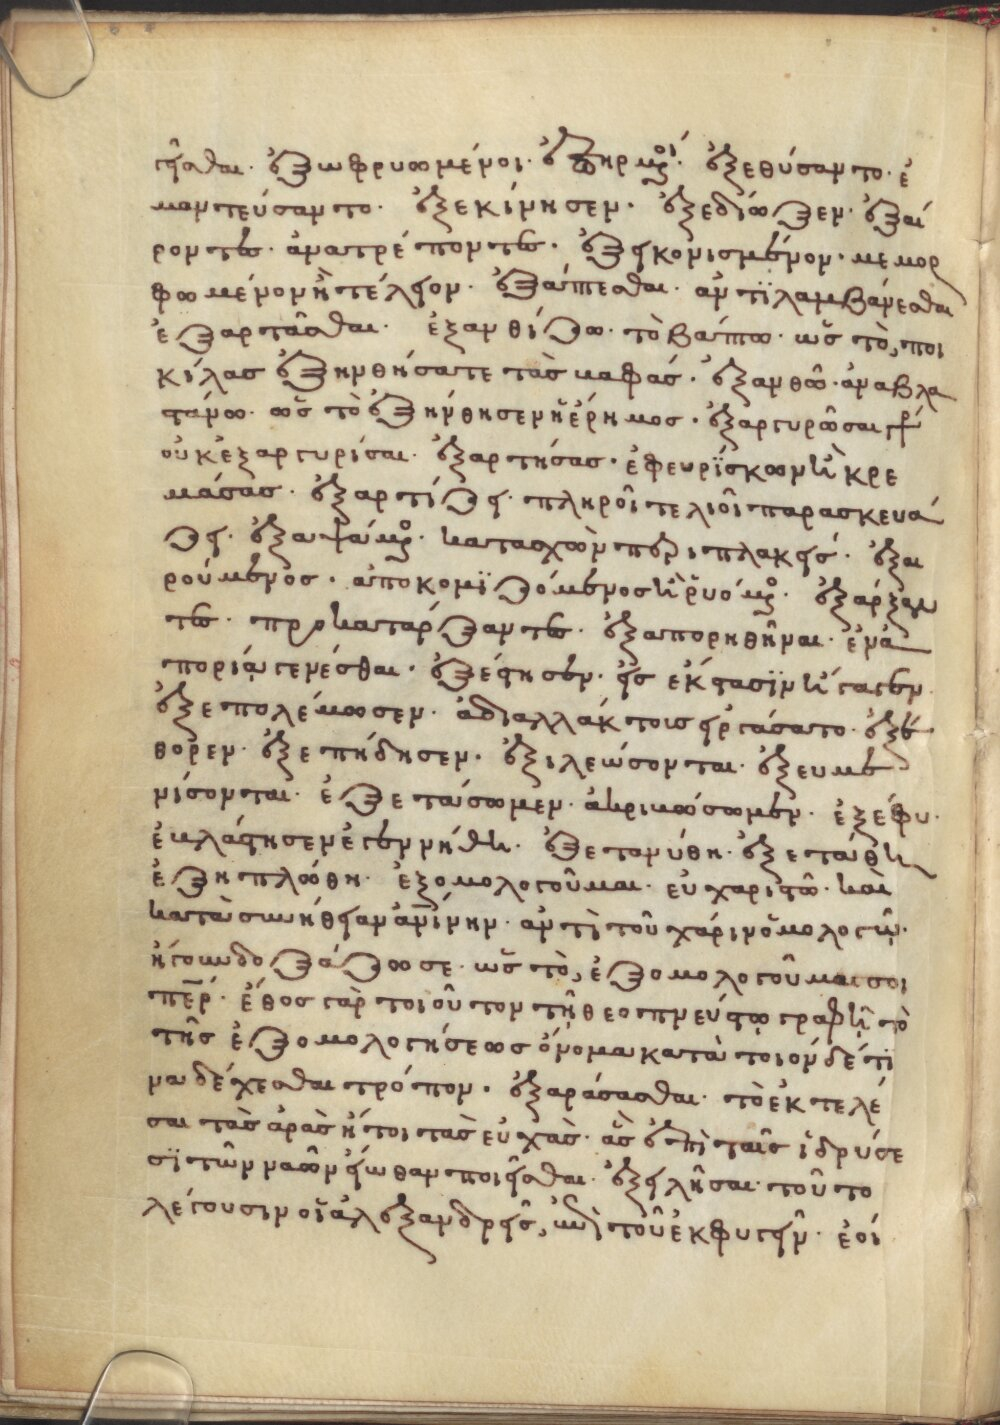 γεῖσθαι. ἐξωφρυωμένοι. ἐξῃρμένοι. ἐξεθύσαντο. ἐ
μαντεύσαντο. ἐξεκίνησεν. ἐξεδίωξεν. ἐξαί
ροντες. ἀνατρέποντες. ἐξεικονισμένον. μεμορ
φωμένον ἢ τέλειον. ἐξάπτεσθαι. ἀντϊλαμβάνεσθαι
ἐξαρτᾶσθαι. ἐξανθίζω. τὸ βάπτω. ὡς τὸ, ποι
κίλας ἐξηνθήσατε τὰς βαφάς. ἐξανθῶ. ἀναβλα
στάνω. ὡς τὸ ἐξήνθησεν ἡ ἔρημος. ἐξαργυρῶσαι
οὐκ ἐξαργυρίσαι. ἐξαρτήσας. ἐφευρΐσκων ἢ κρε
μάσας. ἐξαρτίζει. πληροῖ τελιοῖ παρασκευά
ζει. ἐξαψάμενος. κατασχὼν περιπλακείς. ἐξαι
ρούμενος. ἀποκομϊζόμενος ἢ ῥυόμενος. ἐξάρξαν
τες. προκατάρξαντες. ἐξαπορηθῆναι. ἐν ἀ
πορίᾳ γενέσθαι. ἐξέστησεν. εἰς ἔκστασϊν ἤγαγεν
ἐξεπολέμωσεν. ἀδιαλλάκτοις εἰργάσατο. ἐξέ
θορεν. ἐξεπήδησεν. ἐξιλεώσονται. ἐξευμε
νίσονται. ἐξετάσωμεν. ἀκριβώσωμεν. ἐξέφυ.
ἐβλάστησεν ἐγεννήθη. ἐξετανύθη. ἐξετάθη
ἐξηπλώθη. ἐξομολογοῦμαι. εὐχαριστῶ. καὶ
κατὰ συνήθειαν ἀνίνην. ἀντὶ τοῦ χάριν ὁμολογῶ.
ἤγουν δοξάζω σε. ὡς τὸ, ἐξομολογοῦμαι σοι
περ. ἔθος γὰρ τοιοῦτον τῇ θεοπνεύστῳ γραφῇ τὸ
τῆς ἐξομολογήσεως ὄνομα κατὰ τοιόνδέ τϊ
να δέχεσθαι τρόπον. ἐξαράσασθαι. τὸ ἐκτελέ
σαι τὰς ἀρὰς ἤτοι τὰς εὐχὰς. ἃς ἐπὶ ταῖς ἱδρύσε
σϊ τῶν ναῶν εἰώθαν ποιεῖσθαι. ἐξειλῆσαι. τοῦτο
λέγουσιν οἱ ἀλεξανδρεῖς, ἀντὶ τοῦ ἐκφυγεῖν. ἐοί